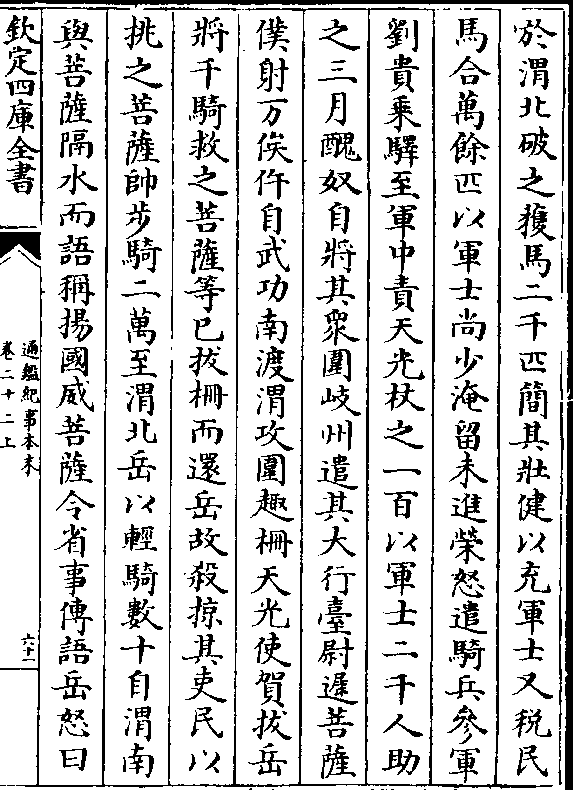 於渭北破之獲馬二千匹簡其壯健以充軍士又稅民
馬合萬餘匹以軍士尚少淹留未進榮怒遣騎兵參軍
劉貴乘驛至軍中責天光杖之一百以軍士二千人助
之三月醜奴自將其衆圍岐州遣其大行臺尉遲菩薩
僕射万俟仵自武功南渡渭攻圍趣柵天光使賀拔岳
將千騎救之菩薩等已拔柵而還岳故殺掠其吏民以
挑之菩薩帥步騎二萬至渭北岳以輕騎數十自渭南
與菩薩隔水而語稱揚國威菩薩令省事傳語岳怒曰
欽定四庫全書
通鑑紀事本末
卷二十二上
六十一